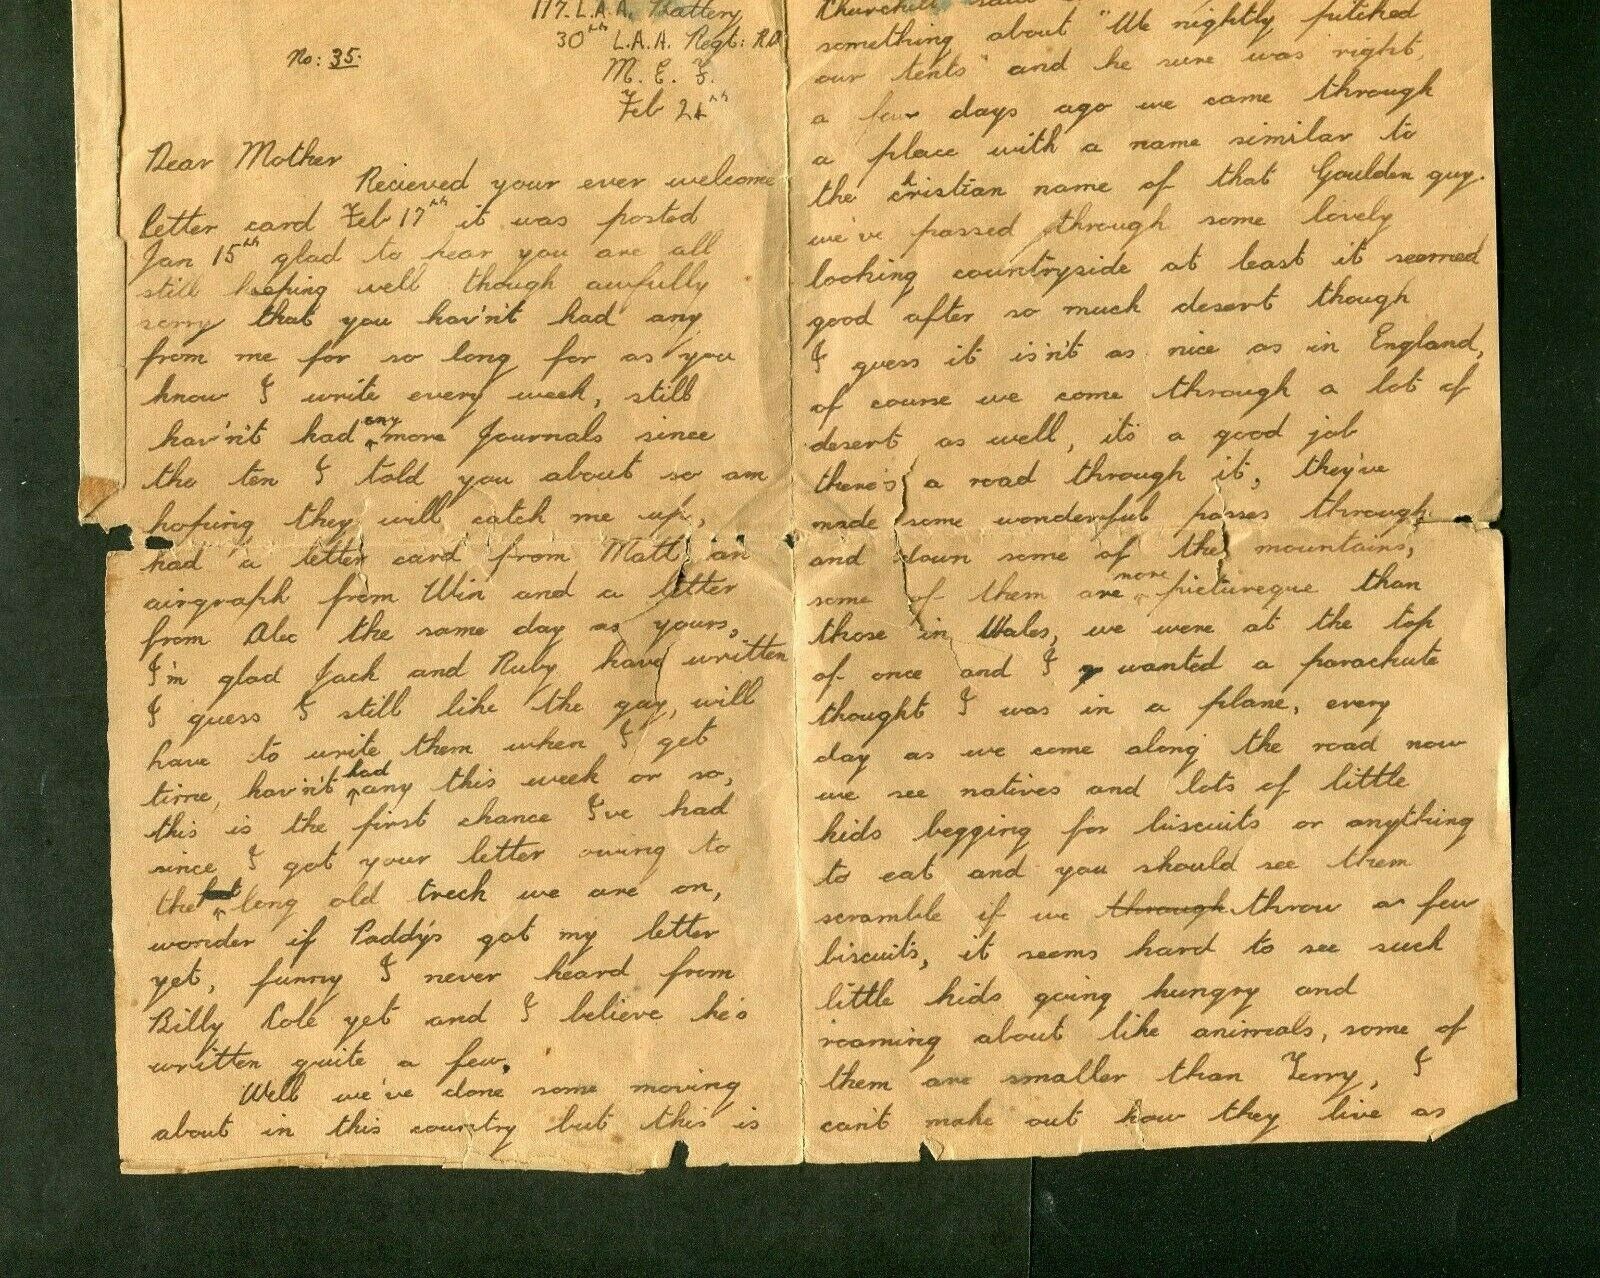 117. L.A.A. Battery
30th L.A.A. Regt: R.A
No: 35.
M. E. F.
Feb 24th
Dear Mother
Recieved your ever welcome
letter card Feb 17th it was posted
Jan 15th glad to hear you are all
still keeping well though awfully
sorry that you hav'n't had any
from me for so long for as you
know I write every week, still
hav'n't had any more Journals since
the ten I told you about so am
hoping they will catch me up,
had a letter card from Matt, an
airgraph from Win and a letter
from Alec the same day as yours,
I'm glad Jack and Ruby have written
I guess I still like the guy, will
have to write them when I get
time, hav'n't had any this week or so,
this is the first chance I've had
since I got your letter owing to
the long old treck we are on,
wonder if Paddy's got my letter
yet, funny I never heard from
Billy Cole yet and I believe he's
written quite a few.
Well we've done some moving
about in this country but this is
Churchill said
something about "We nightly pitched
our tents" and he sure was right,
a few days ago we came through
a place with a name similar to
the christian name of that Goulden guy.
we've passed through some lovely
looking countryside at least it seemed
good after so much desert though
I guess it isn't as nice as in England,
of course we come through a lot of
desert as well, it's a good job
there's a road through it, they've
made some wonderful passes through
and down some of the mountains,
some of them are more pictureque than
those in Wales, we were at the top
of once and I wanted a parachute
thought I was in a plane, every
day as we come along the road now
we see natives and lots of little
kids begging for biscuits or anything
to eat and you should see them
scramble if we through throw a few
biscuits, it seems hard to see such
little kids going hungry and
roaming about like animals, some of
them are smaller than Terry, I
can't make out how they live as